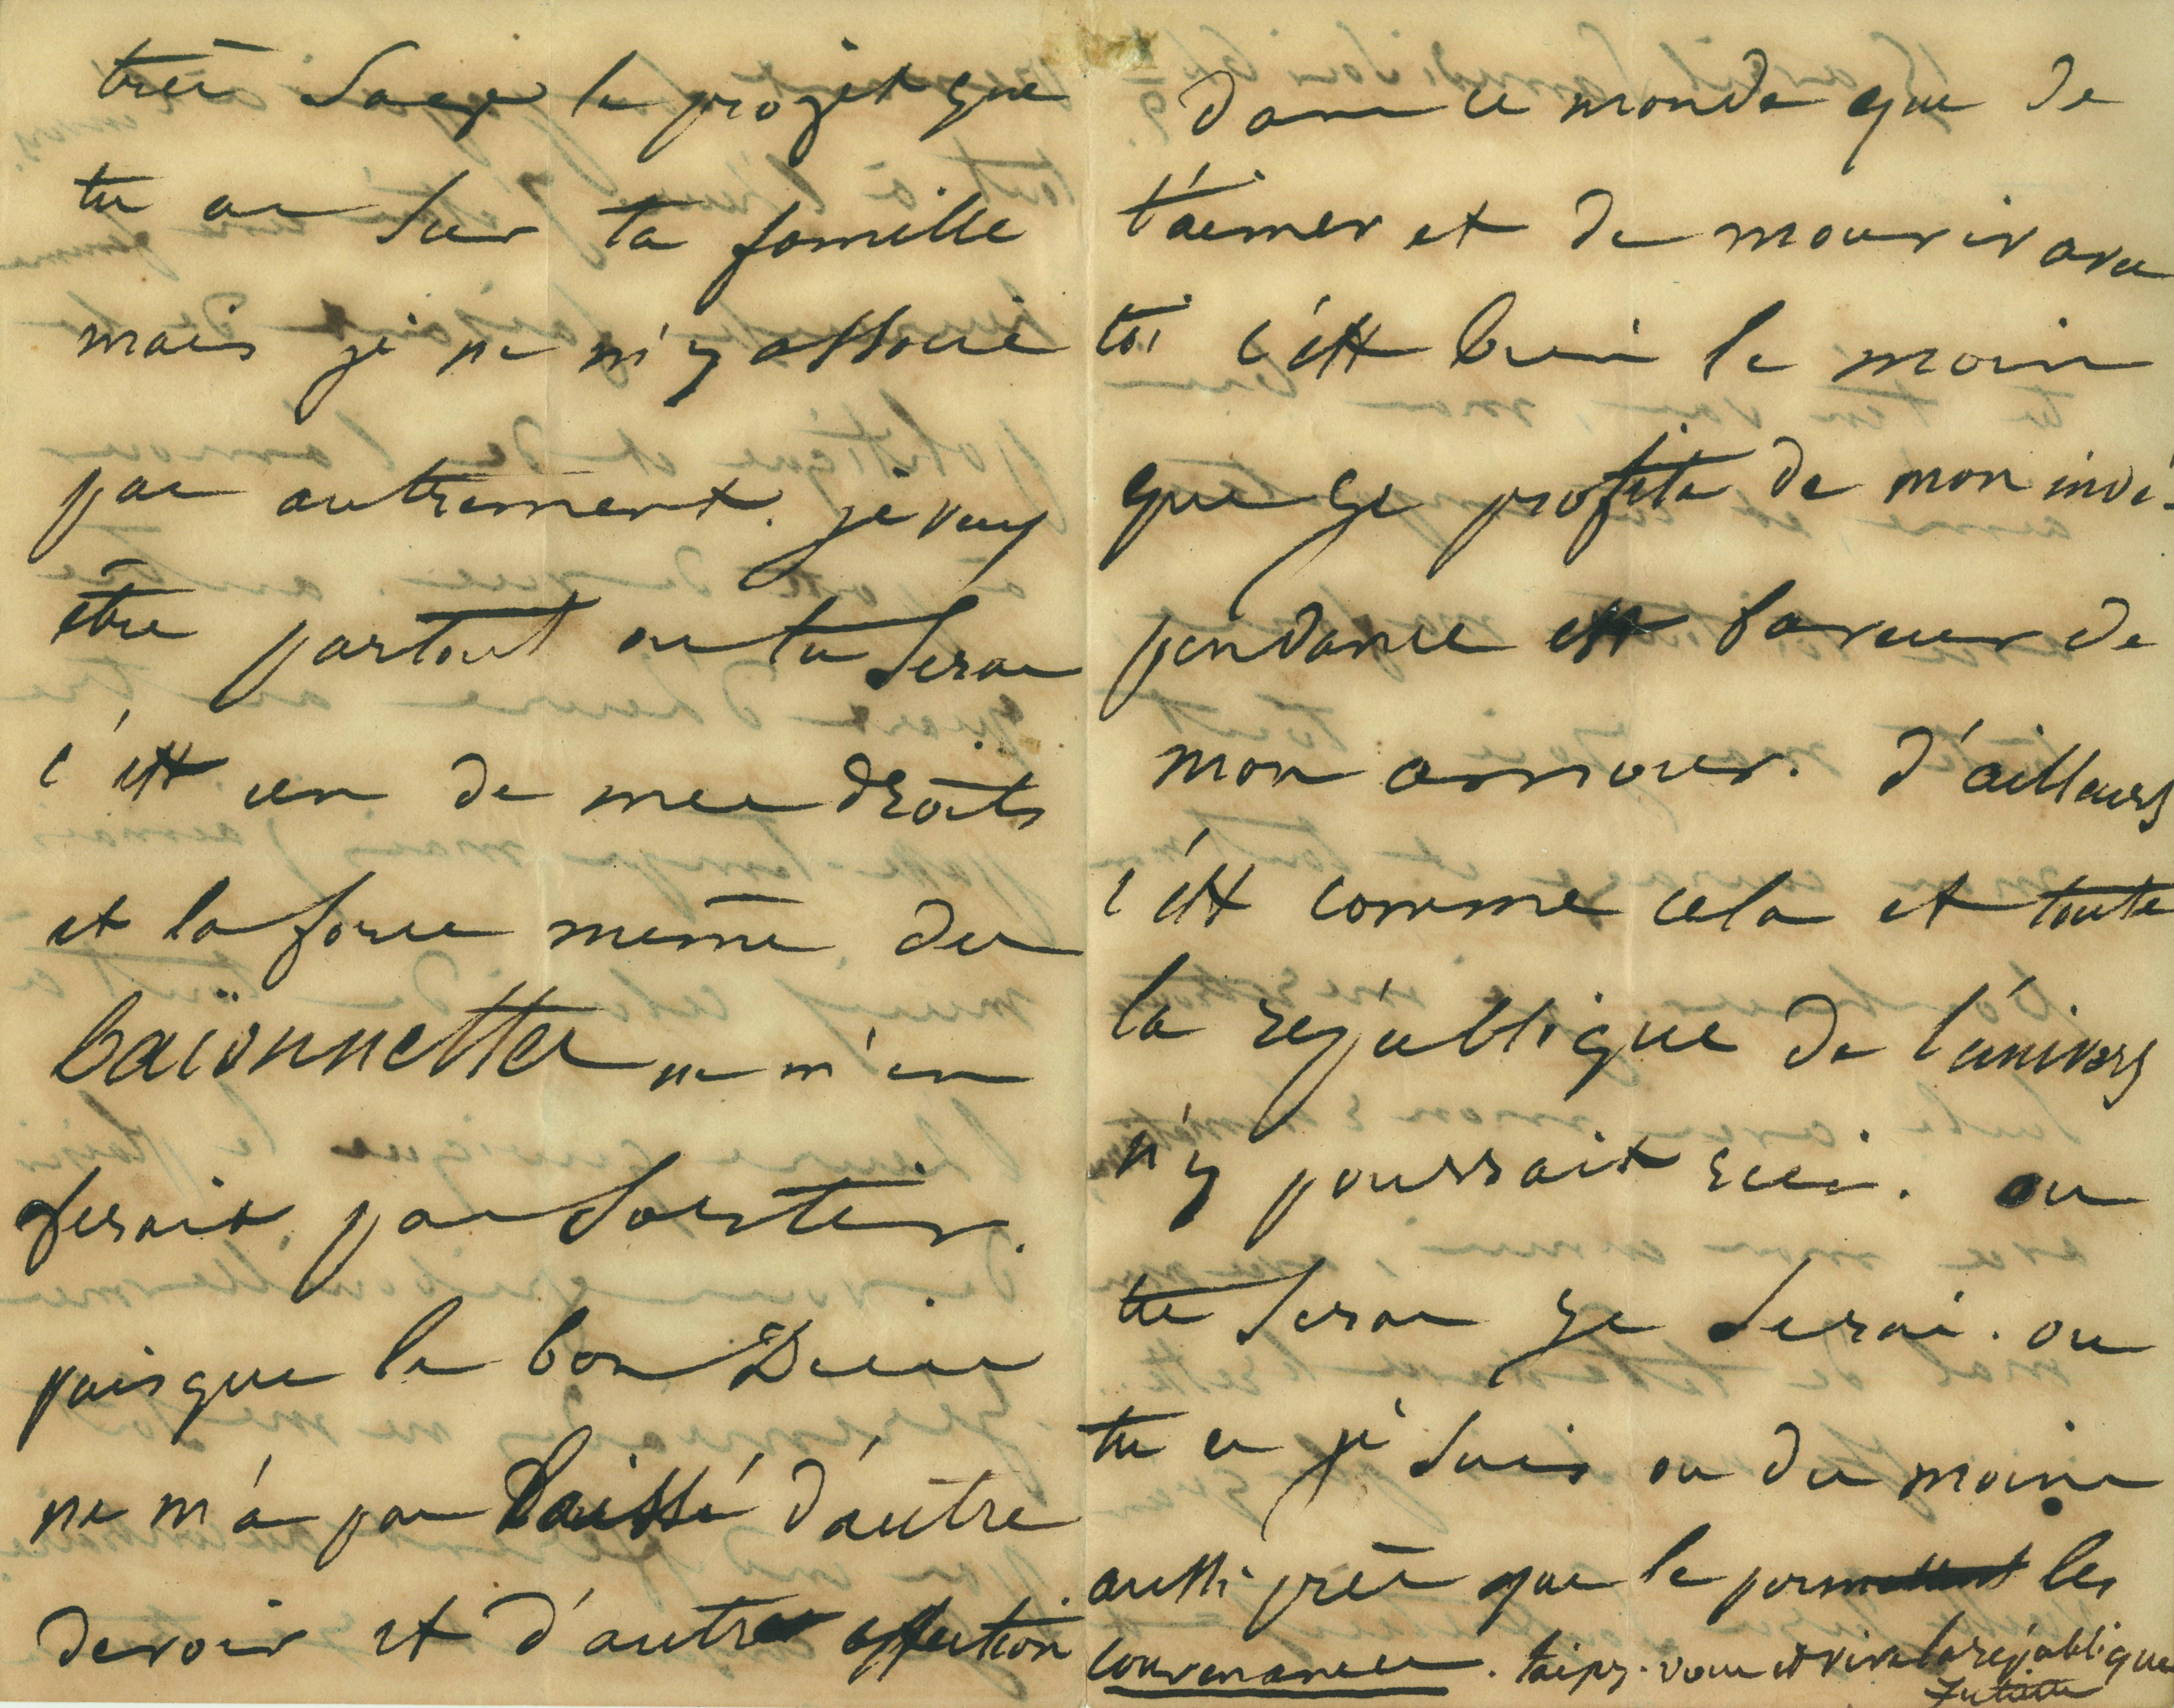 très sage le projet que
tu as sur ta famille
mais je ne m'y associe
pas autrement. je veux
être partout ou tu seras
c'est un de mes droits
et la force même des
baïonnettes ne m'en
ferait pas sortir.
puisque le bon Dieu
ne m'a pas laissé d'autre
devoir et d'autre affection
dans ce monde que de
t'aimer et de mourir avec
toi c'est bien le moins
que je profite de mon indé-
pendance en faveur de
mon amour. d'ailleurs
c'est comme cela et toute
la république de l'univers
n'y pourrait rien. ou
tu seras je serai. ou
tu es je suis ou du moins
aussi près que le permettent les
convenances. taisez-vous et vive la république
Juliette